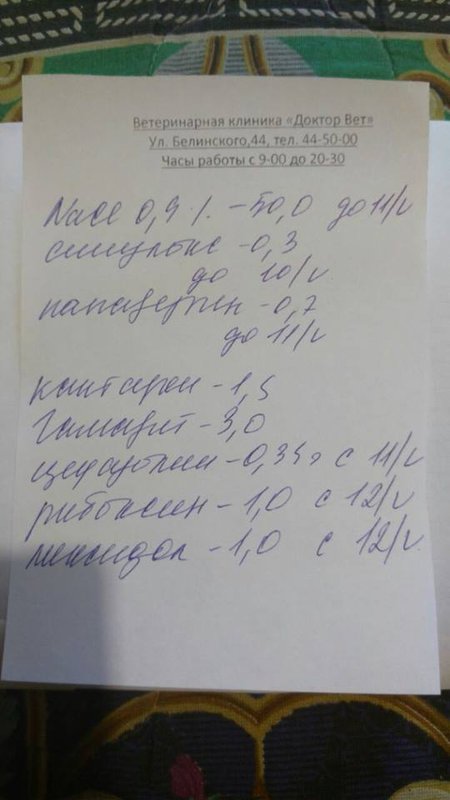 Ветеринарная клиника «Доктор Вет»
Ул. Белинского,44, тел. 44-50-00
Часы работы с 9-00 до 20-30
NaCl 0,9% - 50,0 до 11/V
синулокс - 0,3
до 10/V
папаверин - 0,7
до 11/V
кантарен - 1,5
Гамавит - 3,0
цефазолин - 0,34 с 11/V
рибоксин - 1,0 с 12/V
мексидол - 1,0 с 12/V